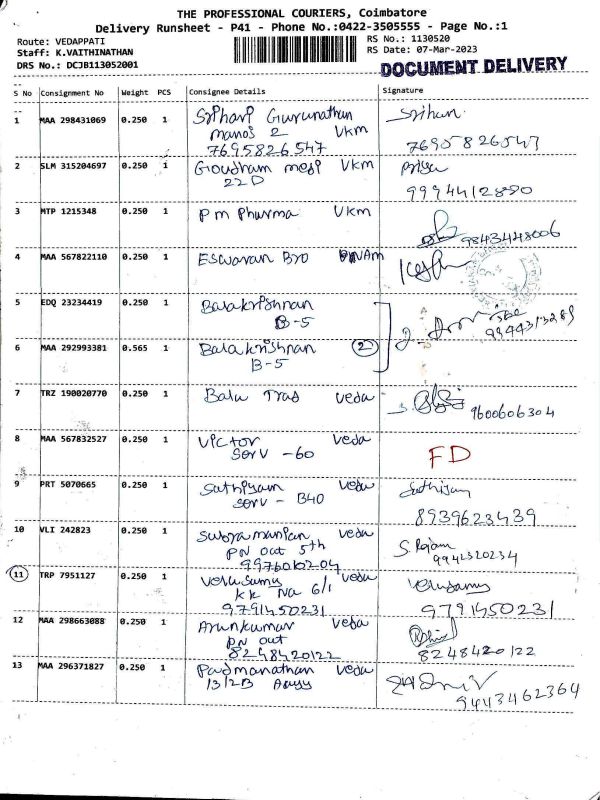 THE PROFESSIONAL COURIERS, Coimbatore
Delivery Runsheet - P41 - Phone No.:0422-3505555 - Page No.:1
Route: VEDAPPATI
RS No.: 1130520
Staff: K.VAITHINATHAN
RS Date: 07-Mar-2023
DRS No.: DCJB113052001
DOCUMENT DELIVERY
S No Consignment No Weight PCS Consignee Details Signature
1 MAA 298431069 0.250 1 Srihari Gurunathan Srihari
manos 2 Vkm
7695826547 7695826547
2 SLM 315204697 0.250 1 Goudham mesi Vkm Priya
22D 9994412890
3 MTP 1215348 0.250 1 Pm Pharma Vkm
9843448006
4 MAA 567822110 0.250 1 Eswaran Bro
5 EDQ 23234419 0.250 1 Balakrishnan
B-5 9944313289
6 MAA 292993381 0.565 1 Balakrishnan 2
B-5
7 TRZ 190020770 0.250 1 Balu Tras Veda 9600606304
8 MAA 567832527 0.250 1 Victor Veda FD
Serv -60
9 PRT 5070665 0.250 1 Sathiyam Veda Sathiyam
Serv - B40 8939623439
10 VLI 242823 0.250 1 Subramanian Veda S. Rajam
PN out 5th 9942320234
9976010204
11 TRP 7951127 0.250 1 Velusamy Veda Velusamy
KK Na 6/1
9791450231 9791450231
12 MAA 298663088 0.250 1 Arunkumar Veda
PN out
8248420122 8248420122
13 MAA 296371827 0.250 1 Padmanathan Veda
13/2B 9443462364